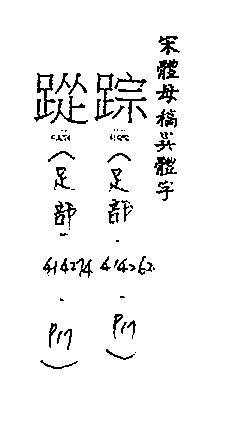 宋體母稿異體字
踪
(足部.414262.P17)
蹤
(足部.414274.P17)